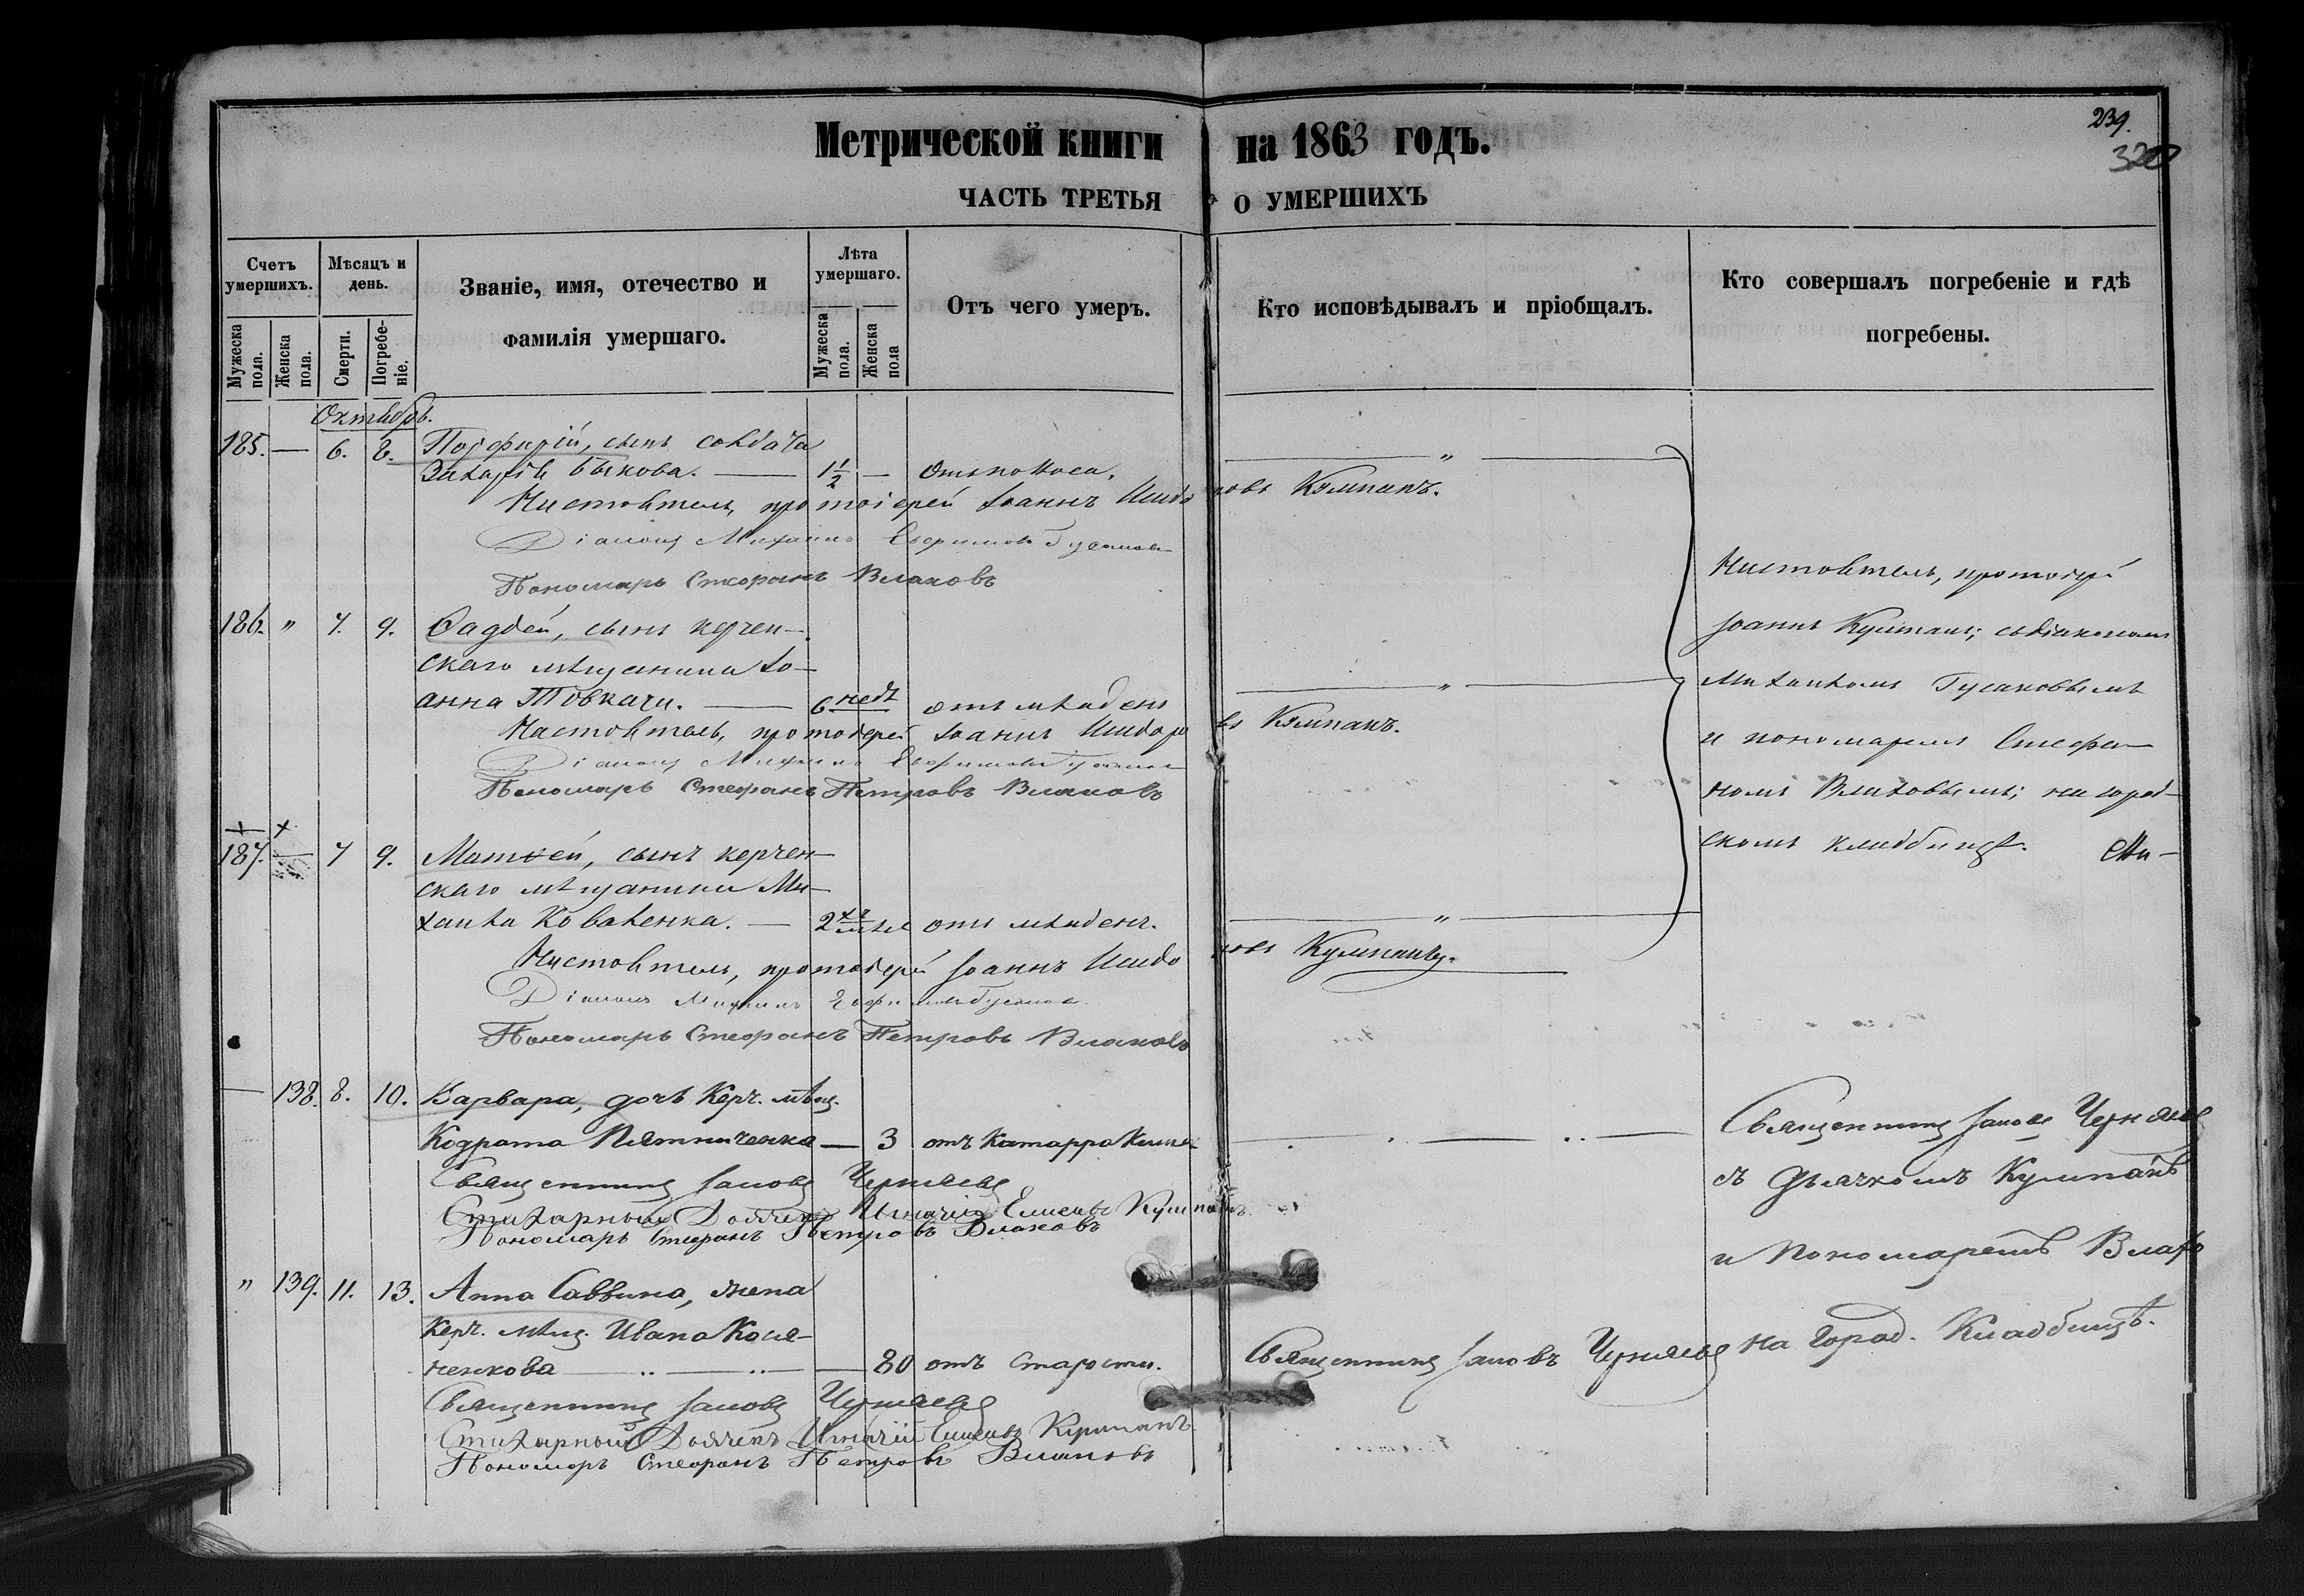 239.
320
Метрической книги на 1863 годъ.
ЧАСТЬ ТРЕТЬЯ О УМЕРШИХЪ
Счетъ умершихъ.
Мужеска пола.
Женска пола.
Мѣсяцъ и день.
Смерти.
Погребе-
ніе.
Званіе, имя, отечество и
фамилія умершаго.
Лѣта умершаго.
Мужеска пола.
Женска пола
Отъ чего умеръ.
Кто исповѣдывалъ и пріобщалъ.
Кто совершалъ погребеніе и гдѣ
погребены.
Октябрь.
185. — 6. 8. Порфирій, сынъ солдата
Захарія Быкова. — 1 1/2 — Отъ поноса. — " —
Настоятель, протоіерей Іоаннъ Исидоровъ Кумпанъ.
Діаконъ Михаилъ Евфимовъ Гусаковъ
Пономарь Стефанъ Влаховъ
186. " 7. 9. Фаддей, сынъ керчен-
скаго мѣщанина Іо-
анна Товкача. — 6 недѣ отъ младен — " —
Настоятель, протоіерей Іоаннъ Исидоровъ Кумпанъ.
Діаконъ Михаилъ Евфимовъ Гусаковъ
Пономарь Стефанъ Петровъ Влаховъ
187. — 7 9. Матѳей, сынъ керчен-
скаго мѣщанина Ми-
хаила Коваленка. — 2 отъ младен. — " —
Настоятель, протоіерей Іоаннъ Исидоровъ Кумпанъ.
Діаконъ Михаилъ Евфимовъ Гусаковъ
Пономарь Стефанъ Петровъ Влаховъ
Настоятель, протоіерей
Іоаннъ Кумпанъ; съ діакономъ
Михаиломъ Гусаковымъ
и пономаремъ Стефа-
номъ Влаховымъ; на город-
скомъ кладбищѣ.
— 138. 8. 10. Варвара, дочь Керч. мѣщ.
Кодрата Пятниченка — 3 отъ Катарра
Священникъ Іаковъ Черняевъ
Стихарный Дьячекъ Игнатій Елисеевъ Кумпанъ
Пономарь Стефанъ Петровъ Влаховъ
Священникъ Іаковъ Черняевъ
съ Дьячкомъ Кумпанъ
и Пономаремъ Влахо
на Город. Кладбищѣ.
" 139. 11. 13. Анна Саввина, жена
Керч. мѣщ. Ивана Кося-
ченкова — 80 отъ Старости. Священникъ Іаковъ Черняевъ
Священникъ Іаковъ Черняевъ
Стихарный Дьячекъ Игнатій Елисеевъ Кумпанъ
Пономарь Стефанъ Петровъ Влаховъ